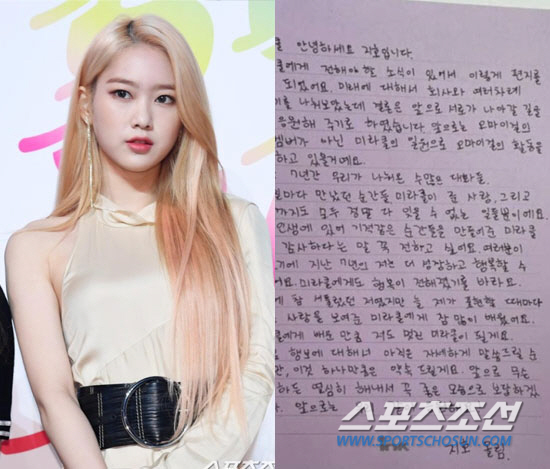 안녕하세요 지호입니다.
에게 전해야 할 소식이 있어서 이렇게 편지를
되었어요. 미래에 대해서 회사와 여러차례
를 나눠보았는데 결론은 앞으로 서로가 나아갈 길을
응원해 주기로 하였습니다. 앞으로는 오마이걸의
멤버가 아닌 미라클의 일원으로 오마이걸의 활동을
하고 있을거예요.
7년간 우리가 나눠온 수많은 대화들,
마다 만났던 순간들, 미라클이 준 사랑, 그리고
까지도 모두 정말 다 잊을 수 없는 일들뿐이에요.
인생에 있어 기적같은 순간들을 만들어준 미라클
감사하다는 말 꼭 전하고 싶어요. 여러분이
기에 지난 7년의 저는 더 성장하고 행복할 수
어요. 미라클에게도 행복이 전해졌기를 바라요.
참 서툴렀던 저였지만 늘 제가 표현할 때마다
사랑을 보여준 미라클에게 참 많이 배웠어요.
에게 배운 만큼 저도 멋진 미라클이 될게요.
행보에 대해서 아직은 자세하게 말씀드릴 순
만, 이것 하나만큼은 약속 드릴게요. 앞으로 무슨
하든 열심히 해내서 꼭 좋은 모습으로 보답하겠
다. 앞으로는
지호 올림.
스포츠조선
WWW.SPORTSCHOSUN.COM
스포츠조선